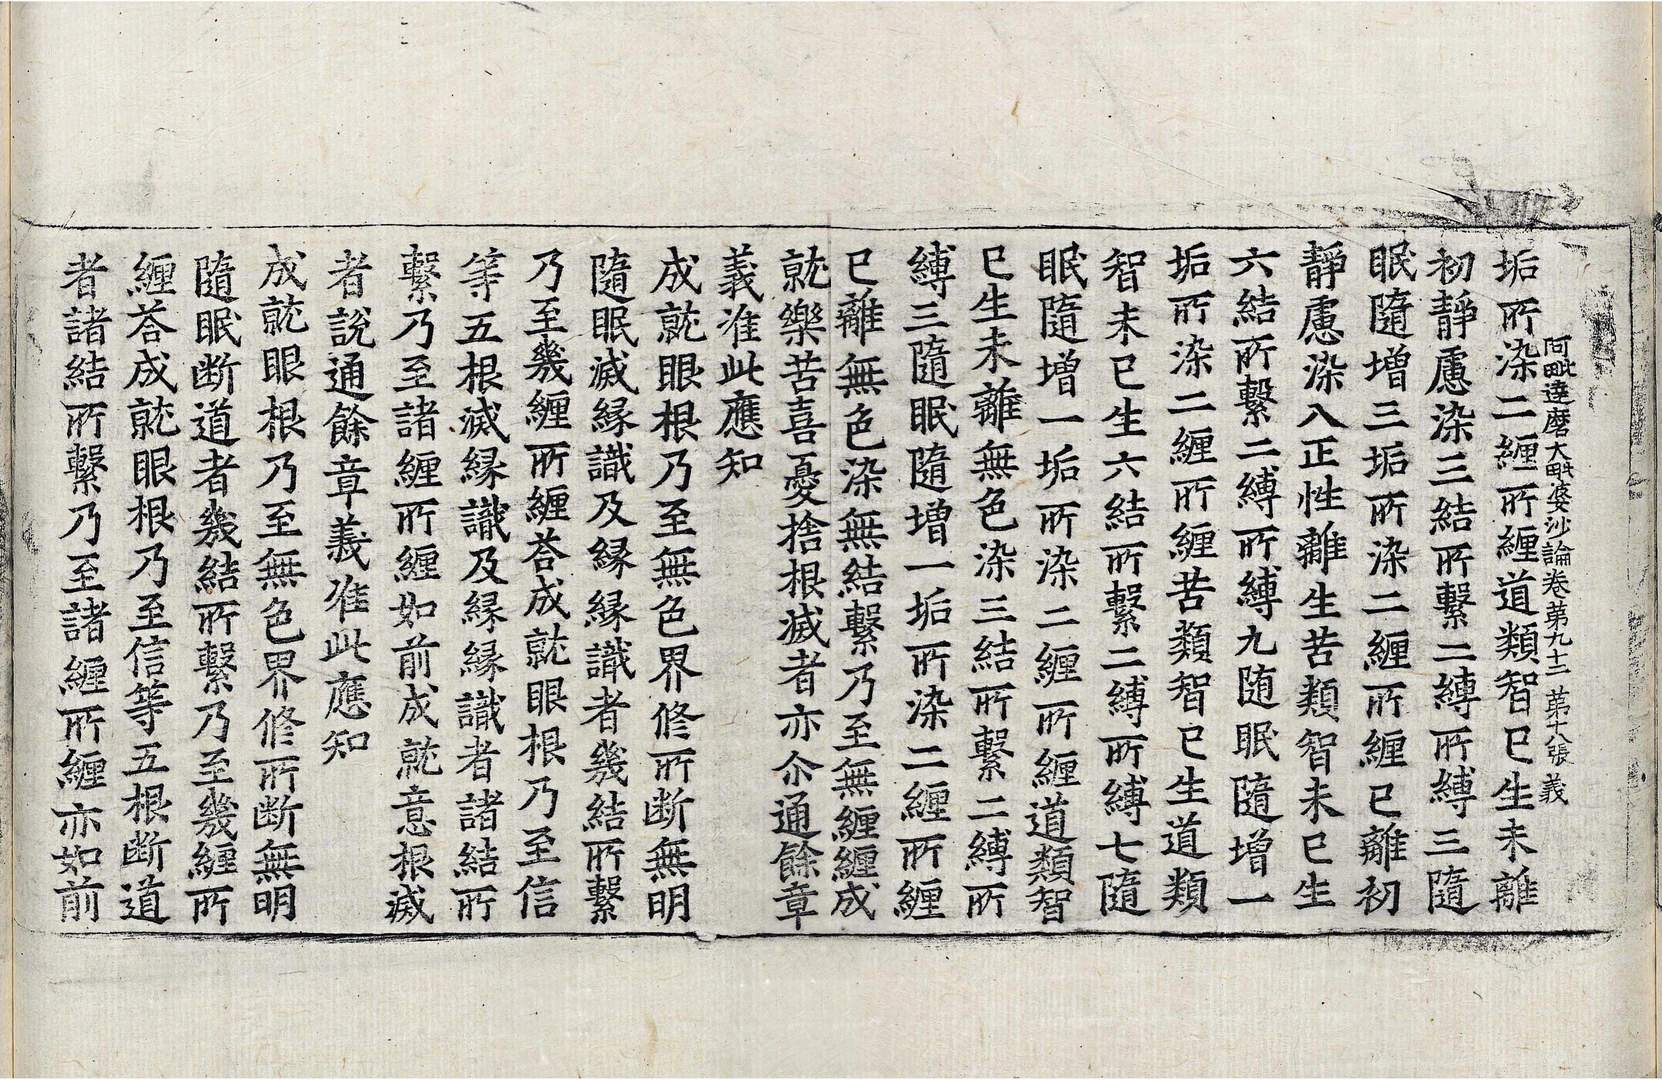 阿毗達磨大毗婆沙論卷第九十二 第十八張 義
垢所染二纏所纏道類智已生未離
初靜慮染三結所繫二縛所縛三隨
眠隨增三垢所染二纏所纏已離初
靜慮染入正性離生苦類智未已生
六結所繫二縛所縛九随眠隨增一
垢所染二纏所纏苦類智已生道類
智未已生六結所繫二縛所縛七隨
眠隨增一垢所染二纏所纏道類智
已生未離無色染三結所繫二縛所
縛三隨眠隨增一垢所染二纏所纏
已離無色染無結繫乃至無纏纏成
就樂苦喜憂捨根滅者亦尒通餘章
義准此應知
成就眼根乃至無色界修所断無明
隨眠滅縁識及縁縁識者幾結所繫
乃至幾纏所纏荅成就眼根乃至信
等五根滅縁識及縁縁識者諸結所
繫乃至諸纏所纏如前成就意根滅
者說通餘章義准此應知
成就眼根乃至無色界修所断無明
隨眠断道者幾結所繫乃至幾纏所
纏荅成就眼根乃至信等五根断道
者諸結所繫乃至諸纏所纏亦如前